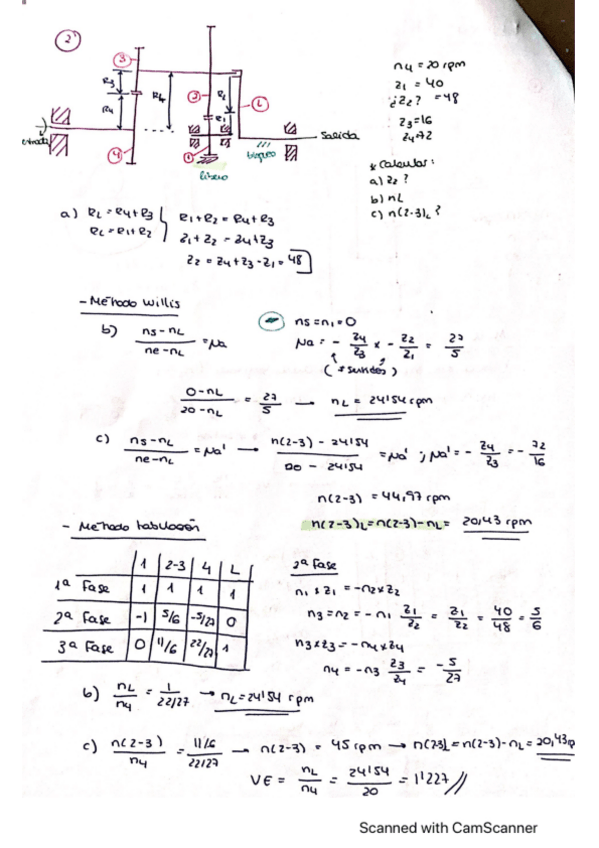 2º
3
R3
R4
RL
2
R2
R1
L
4
1
entrada
bloqueo
Salida
n4 = 20 rpm
z1 = 40
¿z2? = 48
z3 = 16
z4 = 72
* Calcular:
a) z2 ?
b) nL
c) n(2-3)L ?
a) RL = R4 + R3
RL = R1 + R2
R1 + R2 = R4 + R3
z1 + z2 = z4 + z3
z2 = z4 + z3 - z1 = 48
- Método Willis
b) ns - nL / ne - nL = μa
ns = n1 = 0
μa = - z4/z3 x - z2/z1 = 27/5
0 - nL / 20 - nL = 27/5 → nL = 24'54 rpm
c) ns - nL / ne - nL = μa' → n(2-3) - 24'54 / 20 - 24'54 = μa' ; μa' = - z4/z3 = - 72/16
n(2-3) = 44,97 rpm
n(2-3)L = n(2-3) - nL = 20,43 rpm
- Método tabulación
1 2-3 4 L
1ª Fase 1 1 1 1
2ª Fase -1 5/6 -5/27 0
3ª Fase 0 11/6 22/27 1
2ª Fase
n1 x z1 = -n2 x z2
n3 = n2 = - n1 z1/z2 = z1/z2 = 40/48 = 5/6
n3 x z3 = - n4 x z4
n4 = -n3 z3/z4 = -5/27
b) nL/n4 = 1/22/27 → nL = 24'54 rpm
c) n(2-3)/n4 = 11/6/22/27 → n(2-3) = 45 rpm → n(23)L = n(2-3) - nL = 20,43 rp
VE = nL/n4 = 24'54/20 = 1'227 //
Scanned with CamScanner